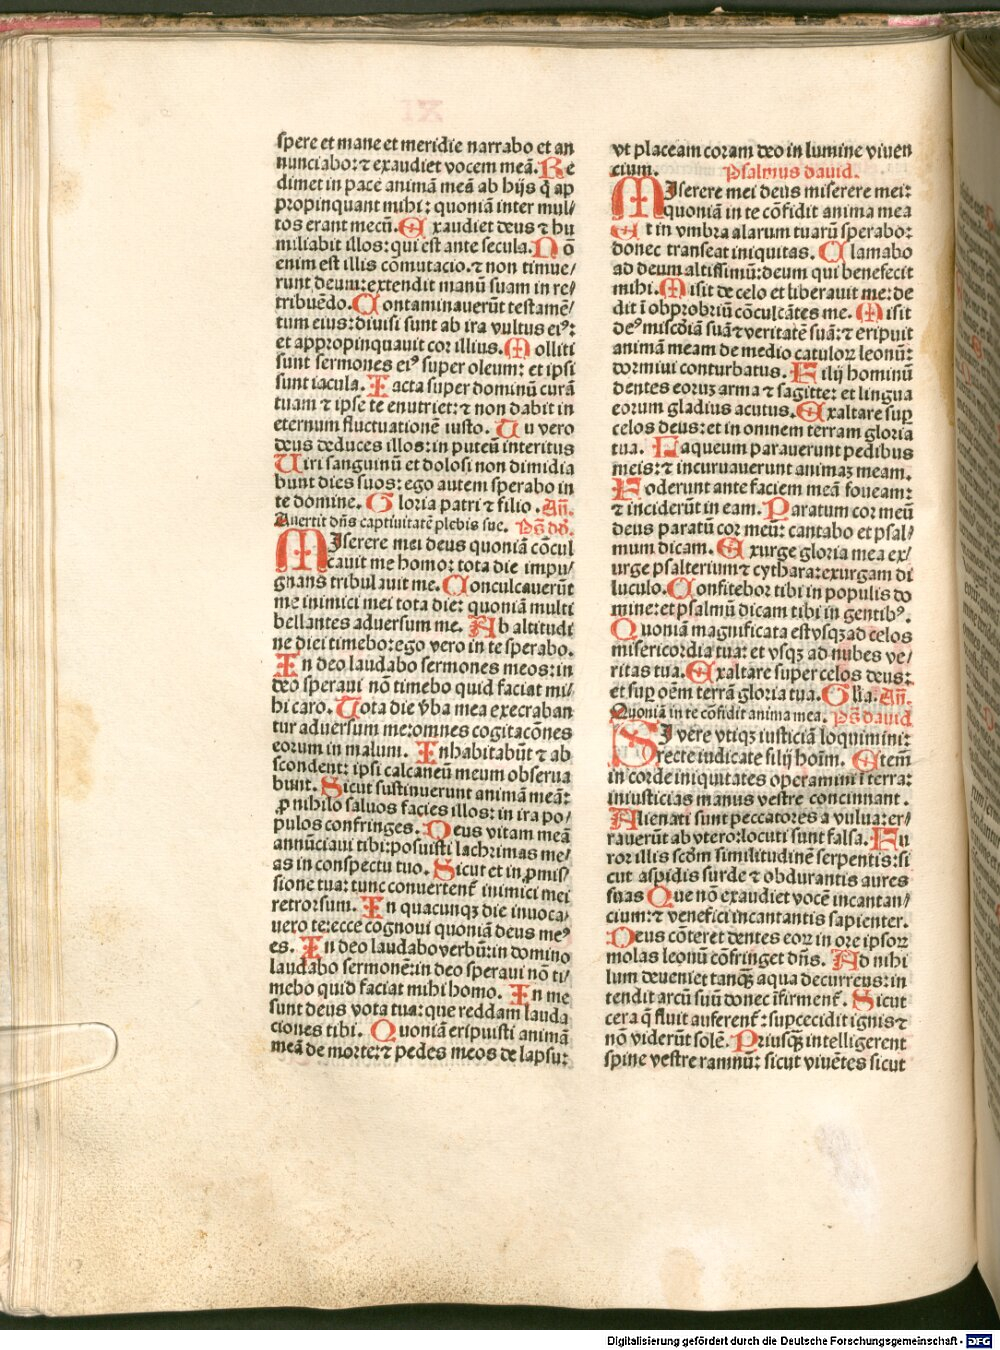 spere et mane et meridie narrabo et an
nunciabo: ⁊ exaudiet vocem meā. Re
dimet in pace animā meā ab hijs q̄ ap
propinquant mihi: quoniā inter mul/
tos erant mecū. Exaudiet deus ⁊ hu
miliabit illos: qui est ante secula. Nō
enim est illis cōmutacio. ⁊ non timue/
runt deum: extendit manū suam in re/
tribuēdo. Contaminauerūt testamē/
tum eius: diuisi sunt ab ira vultus eiꝰ:
et appropinquauit cor illius. Molliti
sunt sermones eiꝰ super oleum: et ipsi
sunt iacula. Iacta super dominū curā
tuam ⁊ ipse te enutriet: ⁊ non dabit in
eternum fluctuationē iusto. Tu vero
deus deduces illos: in puteū interitus
Uiri sanguinū et dolosi non dimidia
bunt dies suos: ego autem sperabo in
te domine. Gloria patri ⁊ filio. Añ.
Auertit dn̄s captiuitatē plebis sue. Ps̄ dd̄.
MIserere mei deus quoniā cōcul
cauit me homo: tota die impu/
gnans tribulauit me. Conculcauerūt
me inimici mei tota die: quoniā multi
bellantes aduersum me. Ab altitudi
ne diei timebo: ego vero in te sperabo.
In deo laudabo sermones meos: in
deo speraui nō timebo quid faciat mi/
hi caro. Tota die v̄ba mea execraban
tur aduersum me: omnes cogitacōnes
eorum in malum. Inhabitabūt ⁊ ab
scondent: ipsi calcaneū meum obserua
bunt. Sicut sustinuerunt animā meā:
ꝓ nihilo saluos facies illos: in ira po/
pulos confringes. Deus vitam meā
annūciaui tibi: posuisti lachrimas me/
as in conspectu tuo. Sicut et in ꝓmis/
sione tua: tunc conuertent̄ inimici mei
retrorsum. In quacunqꝫ die inuoca/
uero te: ecce cognoui quoniā deus meꝰ
es. In deo laudabo verbū: in domino
laudabo sermonē: in deo speraui nō ti/
mebo quid faciat mihi homo. In me
sunt deus vota tua: que reddam lauda
ciones tibi. Quoniā eripuisti animā
meā de morte: ⁊ pedes meos de lapsu:
vt placeam coram deo in lumine viuen
cium. Psalmus dauid.
MIserere mei deus miserere mei:
quoniā in te cōfidit anima mea
Et in vmbra alarum tuarū sperabo:
donec transeat iniquitas. Clamabo
ad deum altissimū: deum qui benefecit
mihi. Misit de celo et liberauit me: de
dit ī obprobriū cōculcātes me. Misit
deꝰ mis̄cdiā suā ⁊ veritatē suā: ⁊ eripuit
animā meam de medio catuloꝝ leonū:
dormiui conturbatus. Filij hominū
dentes eoruꝫ arma ⁊ sagitte: et lingua
eorum gladius acutus. Exaltare sup̄
celos deus: et in omnem terram gloria
tua. Laqueum parauerunt pedibus
meis: ⁊ incuruauerunt animaꝫ meam.
Foderunt ante faciem meā foueam:
⁊ inciderūt in eam. Paratum cor meū
deus paratū cor meū: cantabo et psal/
mum dicam. Exurge gloria mea ex/
urge psalterium ⁊ cythara: exurgam di
luculo. Confitebor tibi in populis do
mine: et psalmū dicam tibi in gentibꝰ.
Quoniā magnificata est vsqꝫ ad celos
misericordia tua: et vsqꝫ ad nubes ve/
ritas tua. Exaltare super celos deus:
et sup̄ oēm terrā gloria tua. Gl̄ia. Añ.
Quoniā in te cōfidit anima mea. Ps̄ dauid
SI vere vtiqꝫ iusticiā loquimini:
recte iudicate filij hoīm. Etem̄
in corde iniquitates operamini ī terra:
iniusticias manus vestre concinnant.
Alienati sunt peccatores a vulua: er/
rauerūt ab vtero: locuti sunt falsa. Fu
ror illis scd̄m similitudinē serpentis: si
cut aspidis surde ⁊ obdurantis aures
suas Que nō exaudiet vocē incantan/
cium: ⁊ venefici incantantis sapienter.
Deus cōteret dentes eoꝝ in ore ipsoꝝ
molas leonū cōfringet dn̄s. Ad nihi
lum deuenient tanqꝫ aqua decurrens: in
tendit arcū suū donec īfirment̄. Sicut
cera q̄ fluit auferent̄: supcecidit ignis ⁊
nō viderūt solē. Priusqꝫ intelligerent
spine vestre ramnū: sicut viuētes sicut
Digitalisierung gefördert durch die Deutsche Forschungsgemeinschaft - DFG